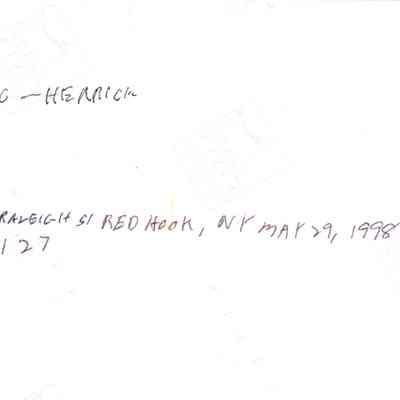 O — HERRICK
RALEIGH ST RED HOOK, NY MAY 29, 1998
127